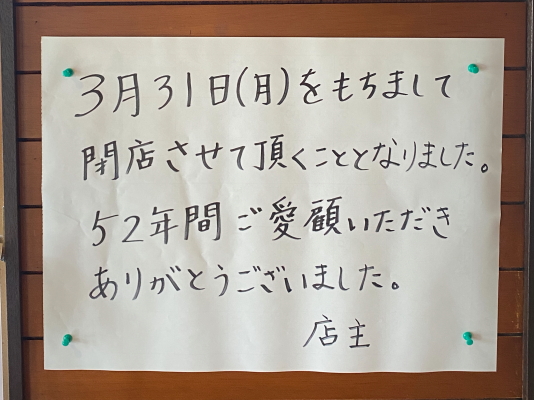 3月31日(月)をもちまして
閉店させて頂くこととなりました。
52年間ご愛顧いただき
ありがとうございました。
店主